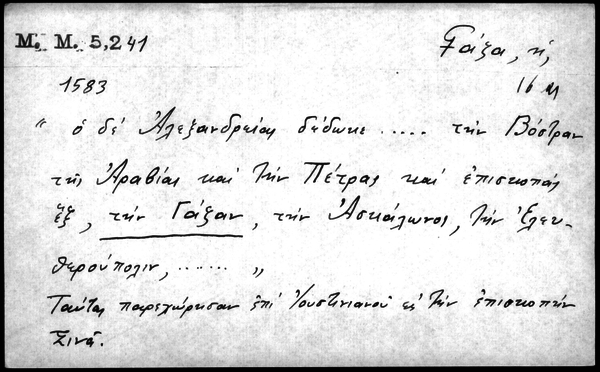 Μ. Μ. 5,241
Γάζα, ἡ,
1583
16 Μ
“ ὁ δέ Ἀλεξανδρείας δέδωκε ..... τήν Βόστραν
τῆς Ἀραβίας καί τήν Πέτρας καί ἐπισκοπάς
ἕξ, τήν Γάζαν, τήν Ἀσκάλωνος, τήν Ἐλευ-
θερούπολιν, ....... „
Ταύτας παρεχώρησαν ἐπί Ἰουστινιανοῦ εἰς τήν ἐπισκοπήν
Σινᾶ.